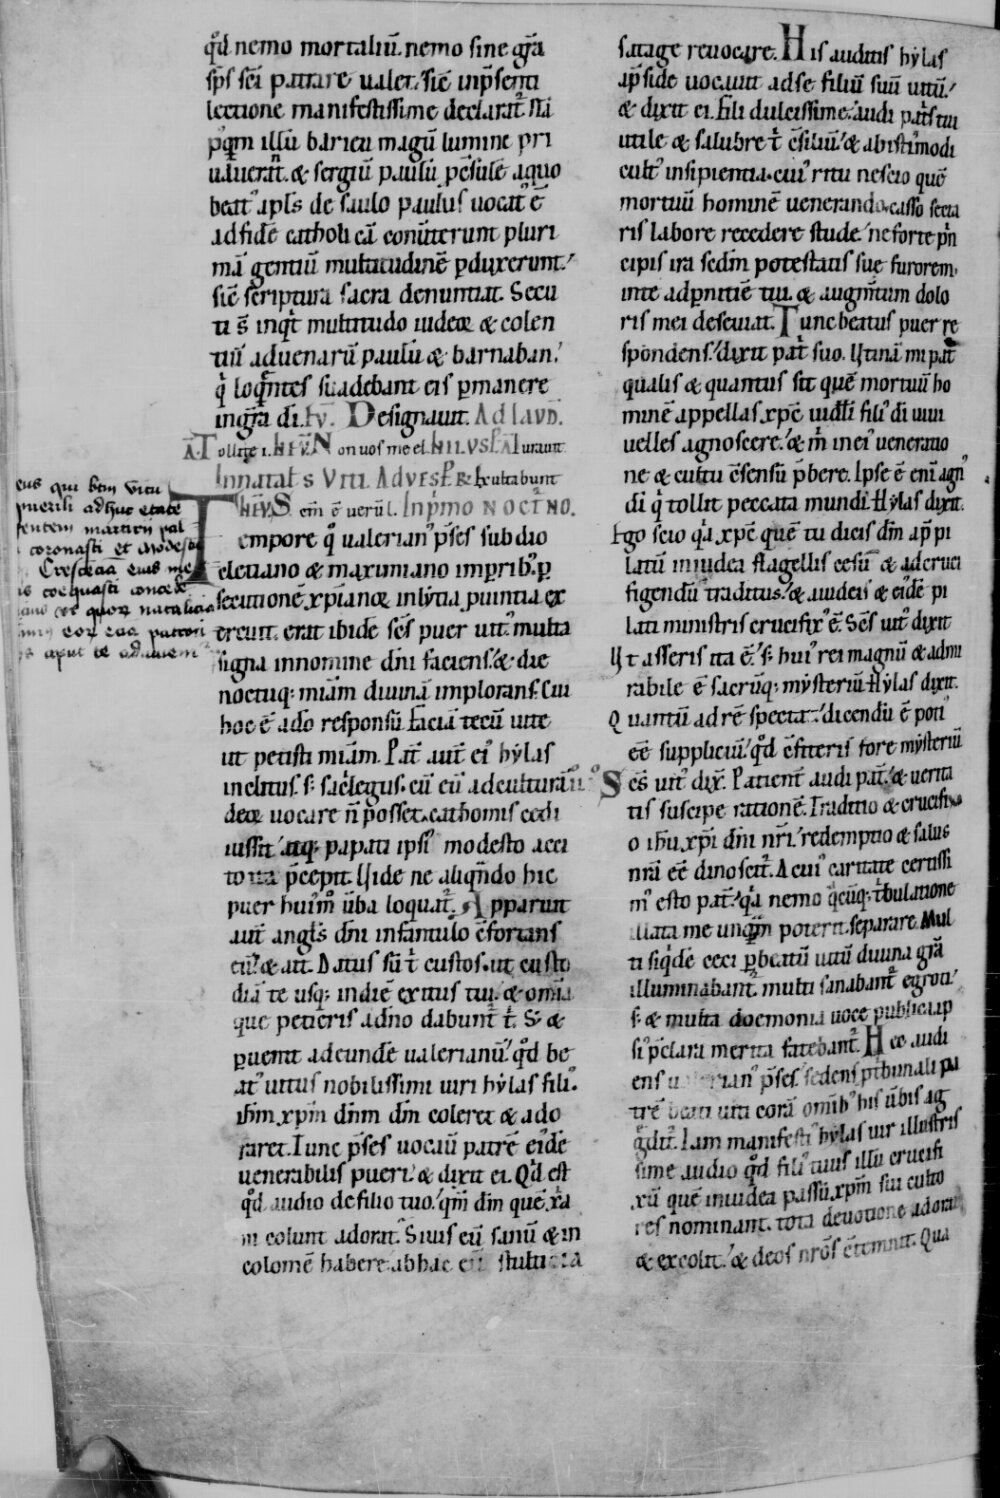 qd̄ nemo mortaliū. nemo sine gr̄a
sp̄s sc̄i patrare ualet. sic̄ inp̄senti
lectione manifestissime declarat᷑. Nā
pq̄m illū barieu magū lumine pri
uauerat᷑. & sergiū paulū p̄csulē aquo
beat᾽ apl̄s de saulo paulus uocat᾽ ē
ad fidē catholicā conuerterunt pluri
mā gentiū multitudinē pduxerunt.
sic̄ scriptura sacra denuntiat. Secu
ti s̄ inqt multitudo iudeoꝝ & colen
tiū aduenarū paulū & barnaban.
qi loquntes suadebant eis pmanere
ingr̄a dī. Eū. Designauit. Ad Laud̄.
A. Tollite i. Hēū. Non uos me el. In Eū. Iurauit
In natale S Viti. Ad Vesp̄. R. Exultabunt
Hēū. S em̄ ē uerūl. In primo noctr̄no.
Tempore q᾽ ualerian᾽ p̄ses sub dio
cletiano & maximiano impr̄ib᾽. p
secutionē xp̄ianoꝝ in lytia puintia ex
ercuit. erat ibidē sc̄s puer uit᾽ multa
signa innomine dn̄i faciens. & die
noctuq; miām diuinā implorans. Cui
hoc ē ado responsū. Faciā tecū uite
ut petisti miām. Pat̄ aut̄ ei᾽ hylas
inclitus. s; sac̄legus. cū eū adculturā
deoꝝ uocare n̄ posset. cathomis cedi
iussit. atq; papati ipsi᾽ modesto acci
to ita p̄cepit. Uide ne aliqndo hic
puer hui᾽m uba loquat᷑. Apparuit
aut̄ angl̄s dn̄i infantulo c̄fortans
eū. & ait. Datus sū t custos. ut custo
diā te usq; indiē exitus tui. & om̄ia
que petieris adn̄o dabunt᷑ t. S; &
puenit adeundē ualerianū. qd̄ be
at᾽ uitus nobilissimi uiri hylas fili᾽
ih̄m xp̄m dn̄m dm̄ coleret & ado
raret. Tunc p̄ses uocauit patrē ei᾽dē
uenerabilis pueri. & dixit ei. Qd̄ est
qd̄ audio de filio tuo. qm̄ dm̄ quē xr̄a
ni colunt adorat. Si uis eū sanū & in
colomē habere. ab hac eū stulticia
eus qui btm̄ vitū
puerili adhuc etate
martirii pal
coronasti et modesti
Crescencia eius
coequasti concede
ut quoꝝ natalicia
eoꝝ
apud te
satage reuocare. His auditis hylas
ap̄side uocauit adse filiū suū uitū.
& dixit ei. Fili dulcissime. audi pat̄s tui
utile & salubre t c̄siliū. & ab isti᾽modi
cult᾽ insipientia. cui᾽ ritu nescio quē
mortuū hominē uenerando. casso secta
ris labore recedere stude. ne forte pn̄
cipis ira sedm̄ potestatis sue furorem
inte adpnitiē tui. & augm̄tum dolo
ris mei deseuiat. Tunc beatus puer re
spondens. dixit pat̄ suo. Utinā mi pat̄
qualis & quantus sit quē mortuū ho
minē appellas. xp̄c uidl̄i fili᾽ dī uiui
uelles agnoscere. & m̄ inei᾽ ueneratio
ne & cultu c̄sensū p̄bere. Ipse ē eni᾽ agn᾽
dī qi tollit peccata mundi. Hylas dixit.
Ego scio qa xp̄c quē tu dicis dm̄ ap̄ pi
latū iniudea flagellis cesū & ad cruci
figendū traditus. & aiudeis & eidē pi
lati ministris crucifix᾽ ē. Sc̄s uit᾽ dixit
Ut asseris ita ē. s; hui᾽ rei magnū & admi
rabile ē sacrūq; mysteriū. Hylas dixit.
Quantū ad rē spectat. dicendū ē poti᾽
eē suppliciū. qd̄ c̄fiteris fore mysteriū
Sc̄s uit᾽ dix̄. Patient᷑ audi pat̄. & uerita
tis suscipe rationē. Traditio & crucifixi
o ih̄u xp̄i dn̄i nr̄i. redemptio & salus
nr̄a eē dinoscit᷑. A cui᾽ caritate certissi
m᾽ esto pat̄. qa nemo qcūq; tbulatione
illata me unqm̄ poterit separare. Mul
ti siqdē ceci p beatū uitū diuina gr̄a
illuminabant᷑. multi sanabant᷑ egroti.
s; & multa doemonia uoce publica ip
si᾽ p̄clara merita fatebant᷑. Hec audi
ens ualerian᾽ p̄ses. sedens ptbunali pa
trē beati uiti corā omib᾽ his ubis ag
gdit᷑. Iam manifesti᾽ hylas uir illustris
sime audio qd̄ fili᾽ tuus illū crucifi
xū quē iniudea passū. xp̄m sui culto
res nominant. tota deuotione adorat
& excolit. & deos nr̄os c̄temnit. Qua